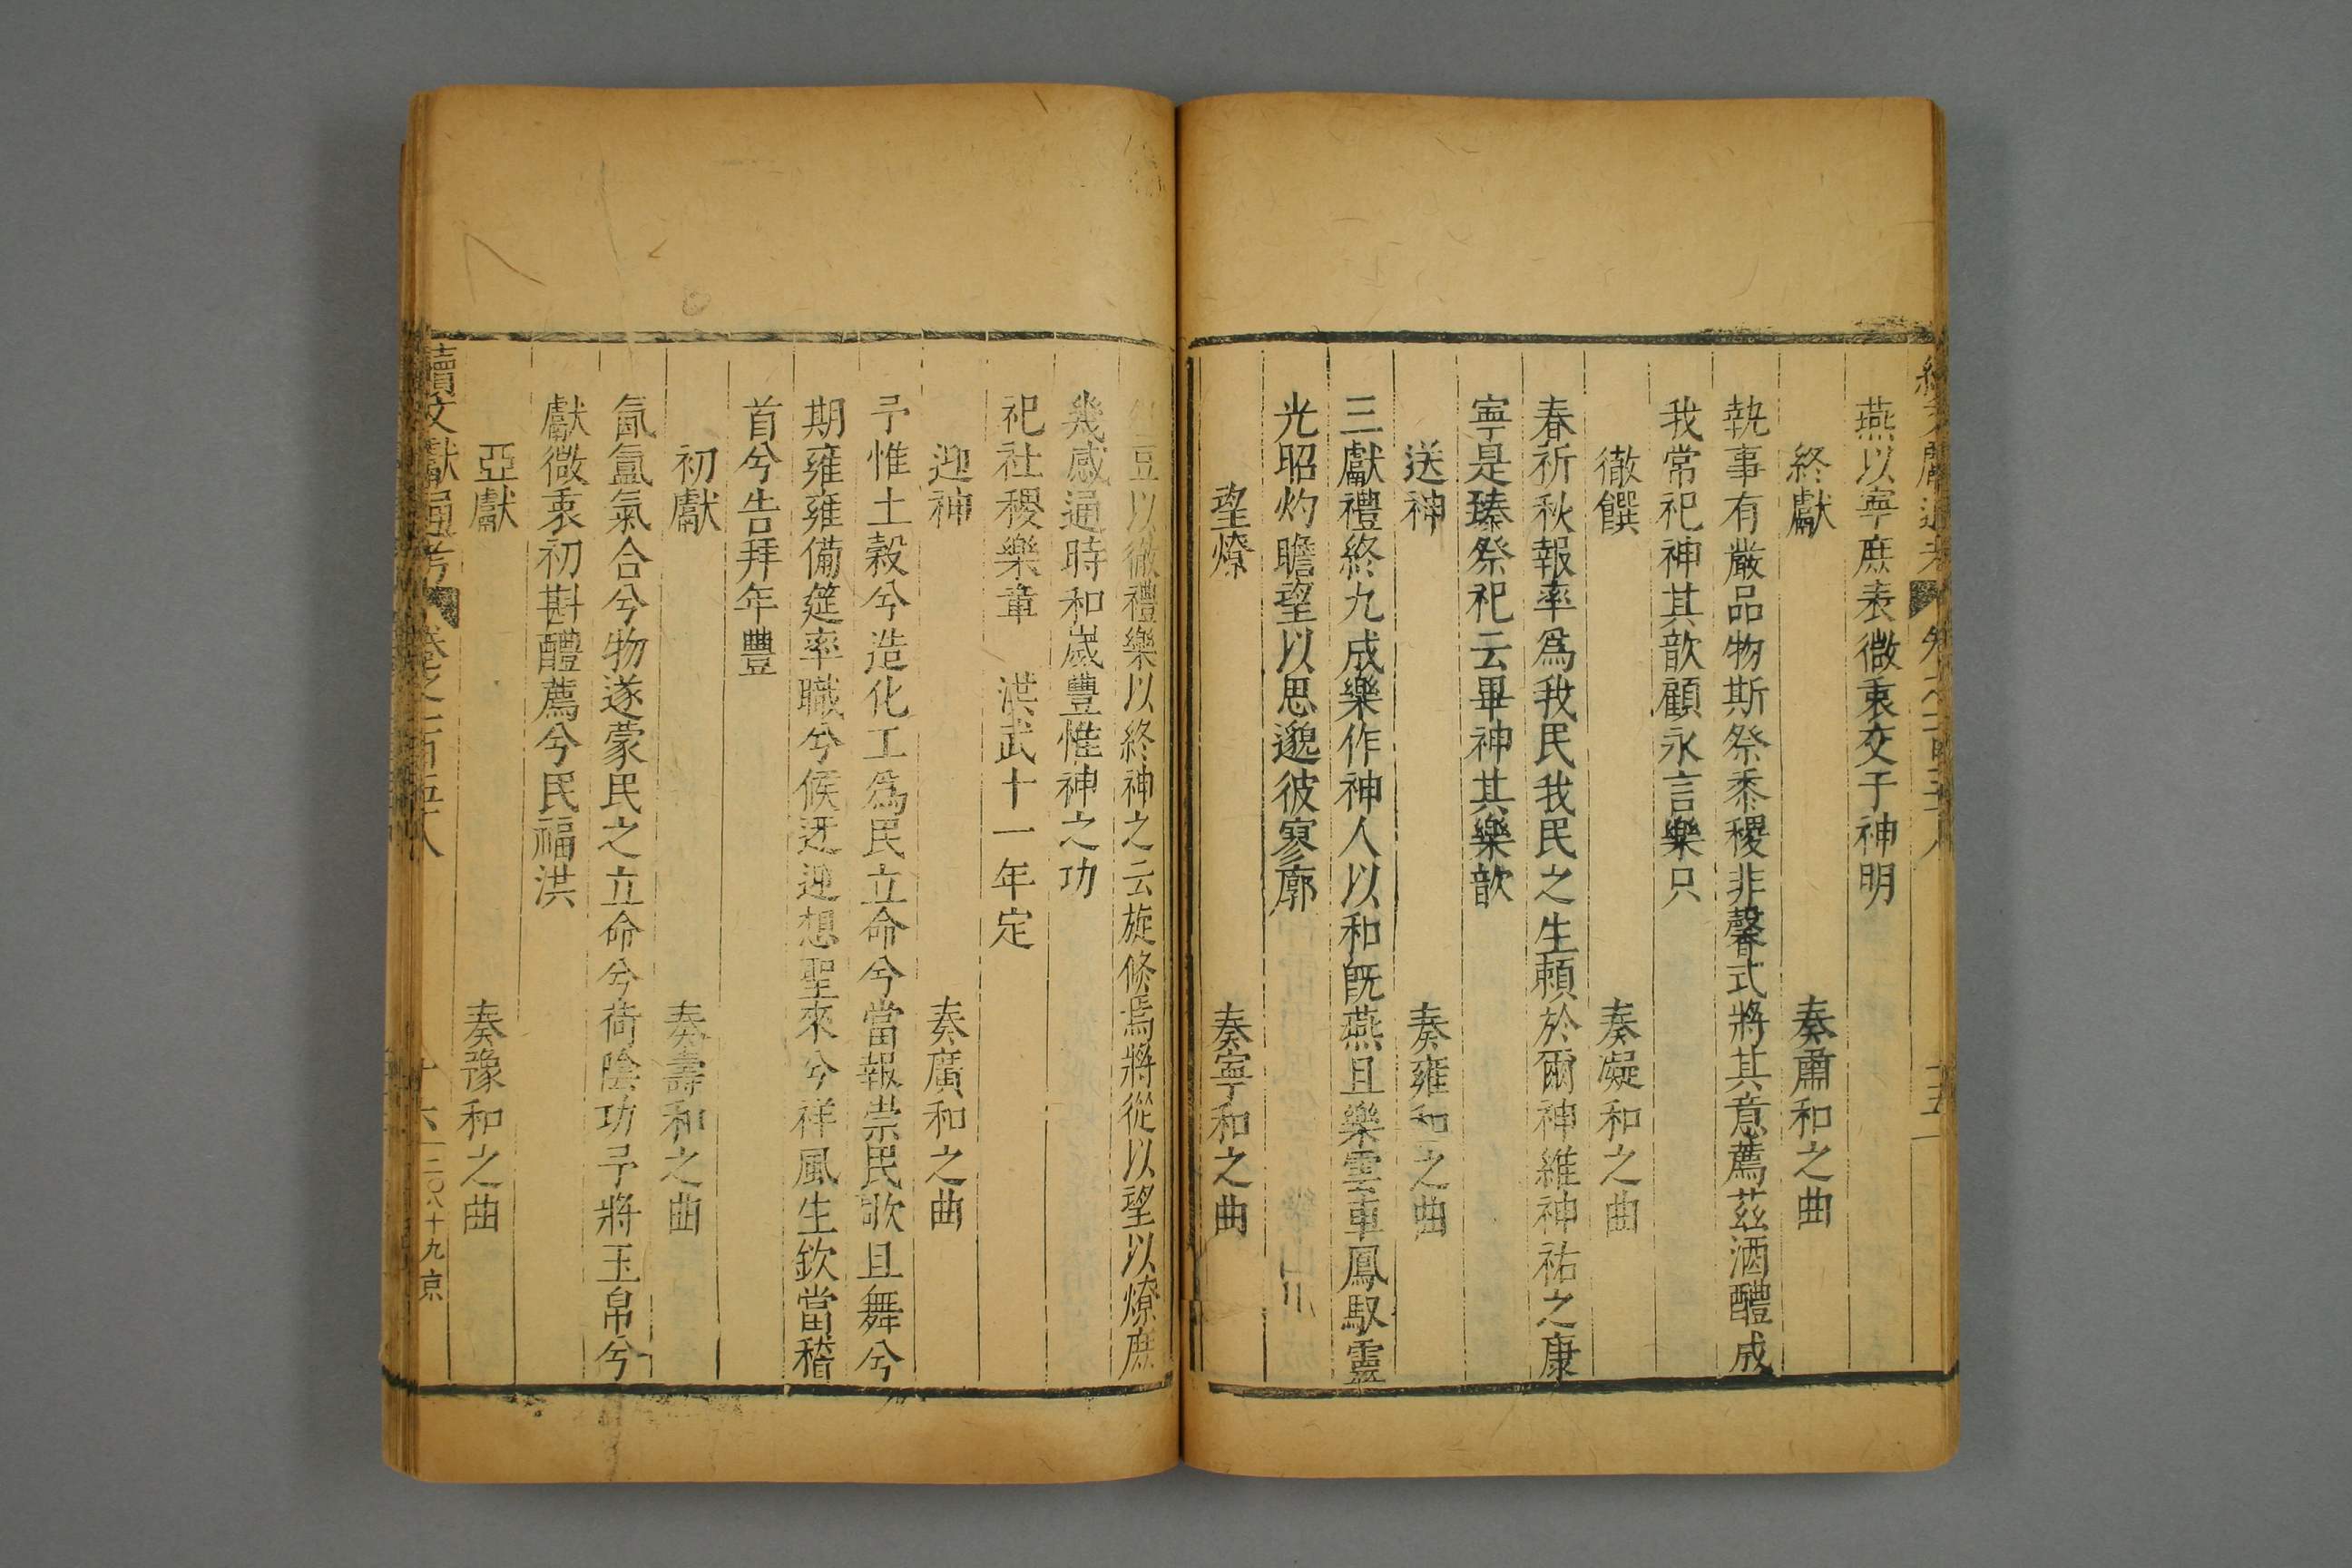 燕以寧庶表微衷交于神明
終獻 奏肅和之曲
執事有嚴品物斯祭黍稷非馨式將其意薦茲酒醴成
我常祀神其歆顧永言樂只
徹饌 奏凝和之曲
春祈秋報率爲我民我民之生賴於爾神維神祐之康
寧是臻祭祀云畢神其樂歆
送神 奏雍和之曲
三獻禮終九成樂作神人以和既燕且樂雲車鳳馭靈
光昭灼瞻望以思邈彼寥廓
望燎 奏寧和之曲
豆以徹禮樂以終神之云旋倏焉將從以望以燎庶
幾感通時和歲豐惟神之功
祀社稷樂章 洪武十一年定
迎神 奏廣和之曲
予惟土穀兮造化工爲民立命兮當報崇民歌且舞兮
期雍雍備筵率職兮候迓迎想聖來兮祥風生欽當稽
首兮告拜年豐
初獻 奏壽和之曲
氤氳氣合兮物遂蒙民之立命兮荷陰功予將玉帛兮
獻微衷初斟醴薦兮民福洪
亞獻 奏豫和之曲
續文獻通考 卷之一百五八 十六 二〇八十九京